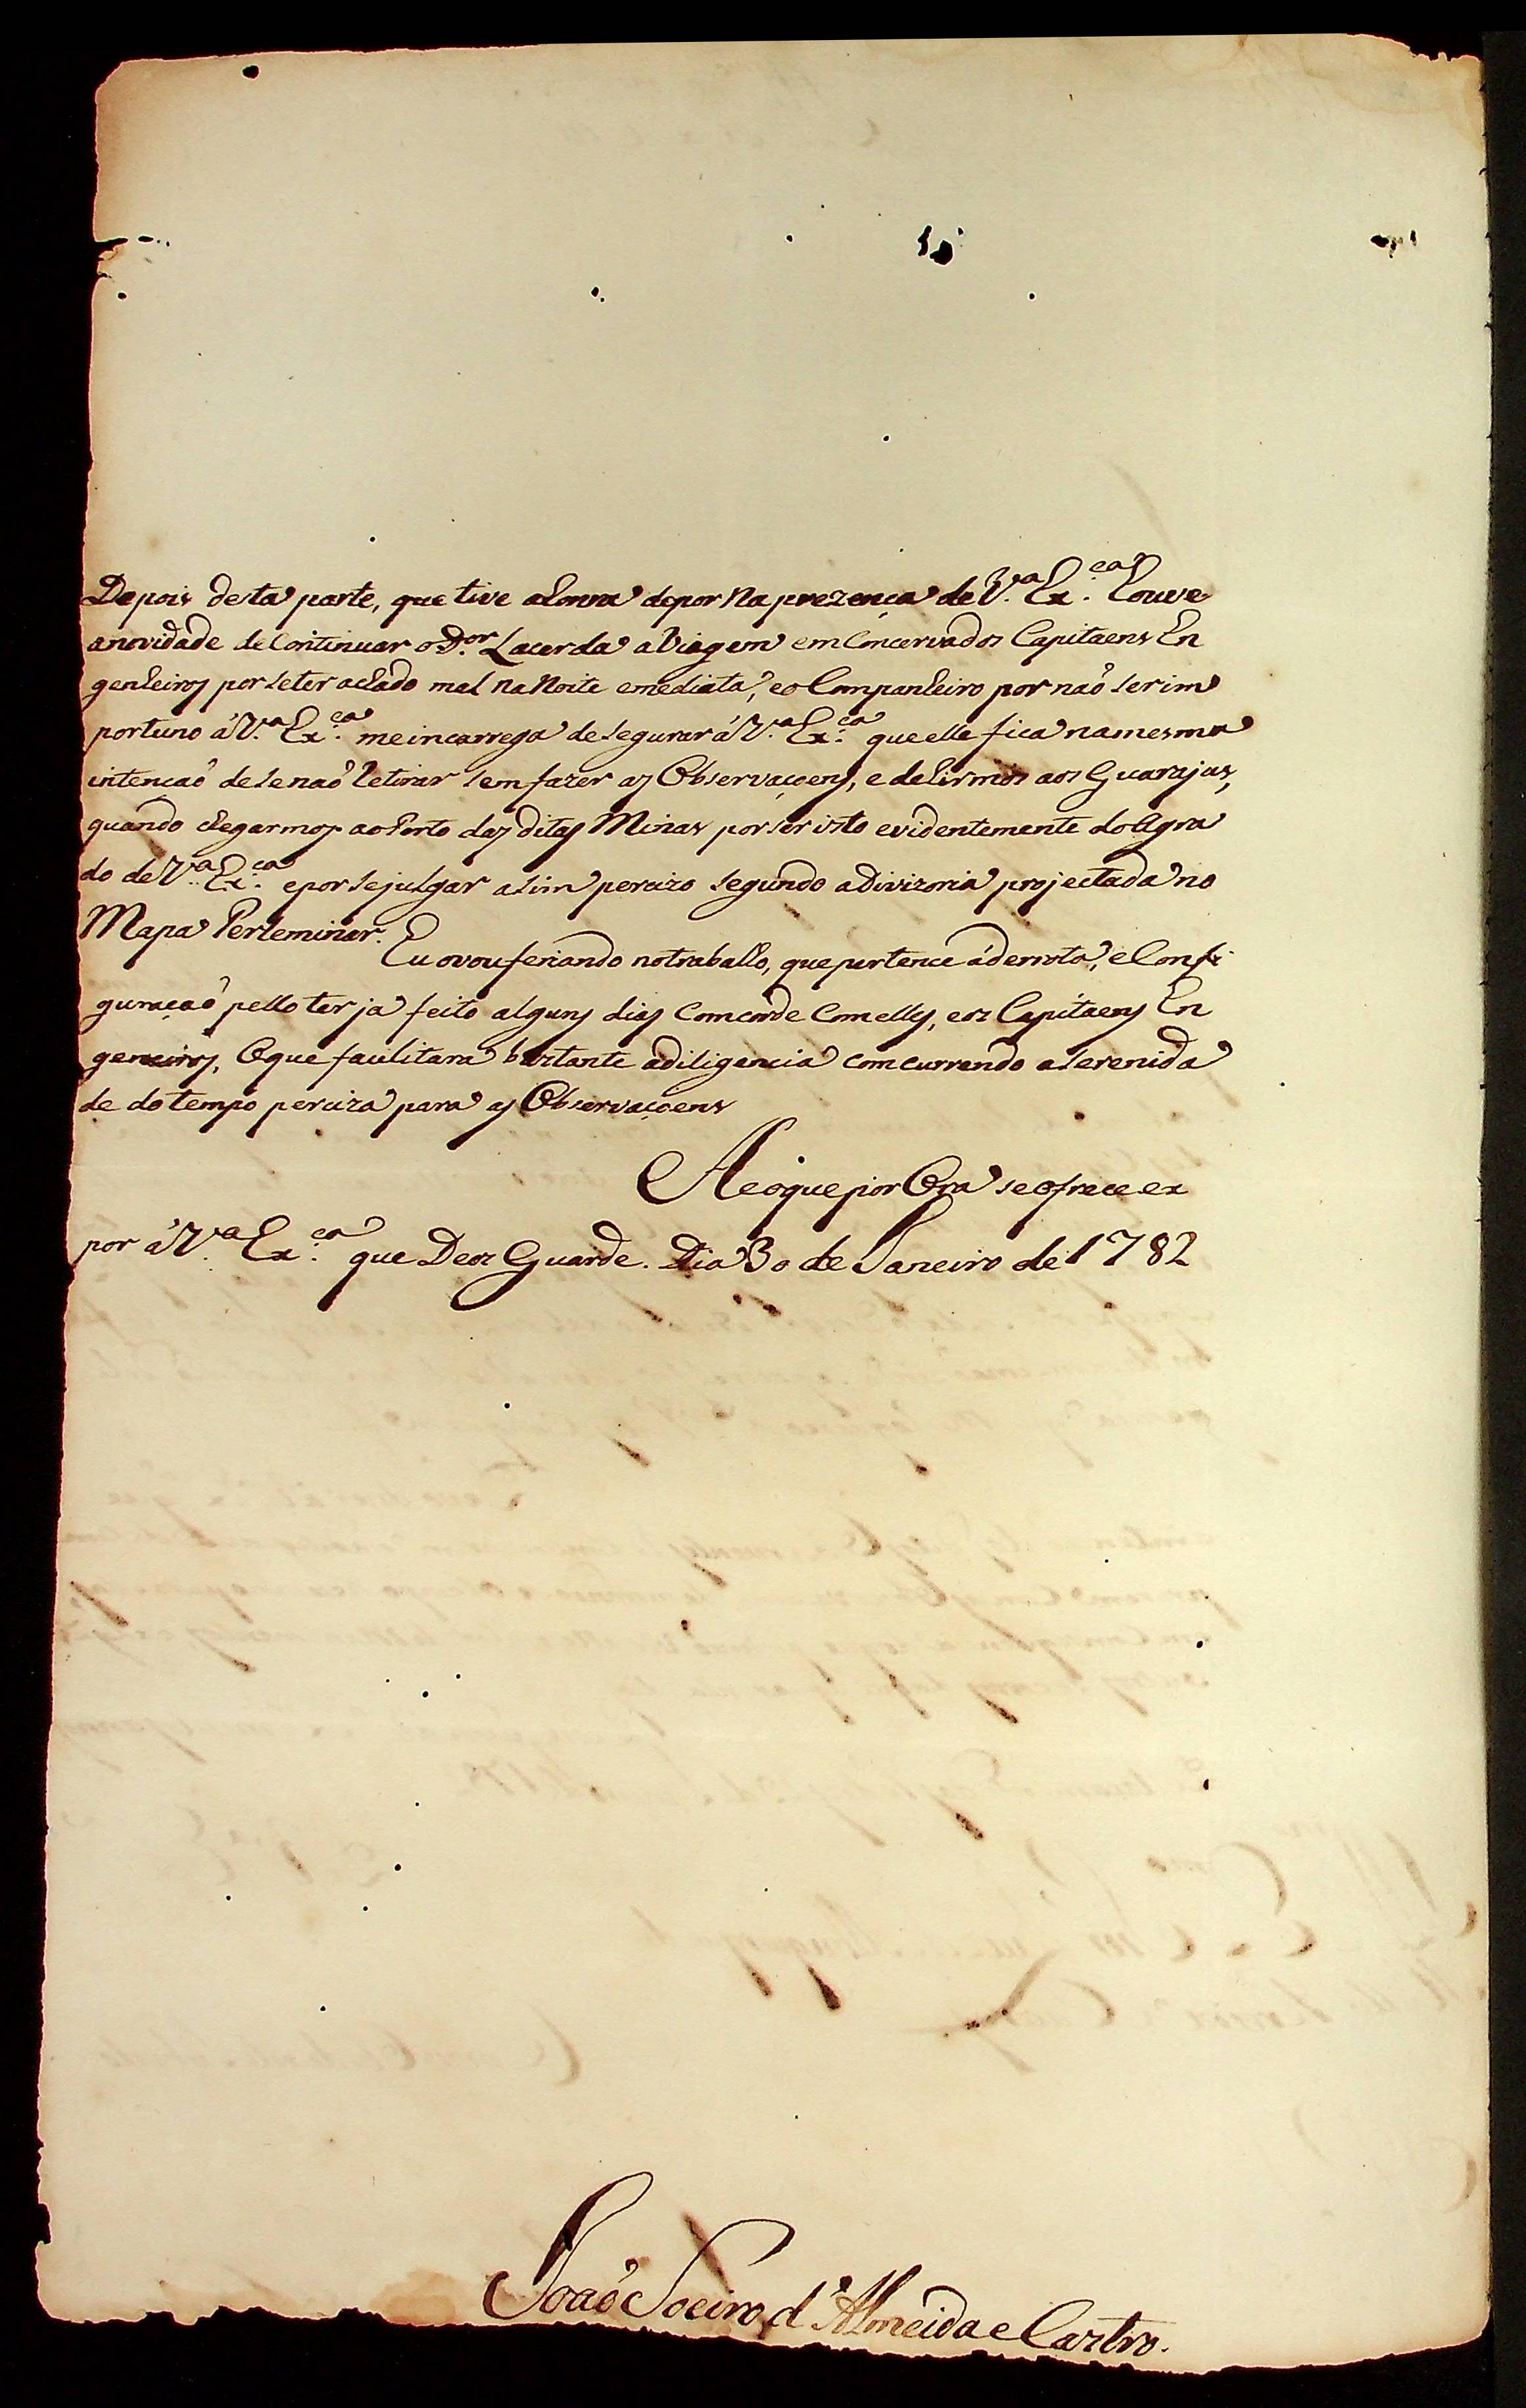 Depois desta parte, que tive a honra de por na prezença de V.ª Ex.ca houve
a novidade de Continuar o D.or Lacerda a Viagem em Concerva dos Capitaens En
genheiros por se ter achado mal na Noite emediata, e o Companheiro por naõ ser im
portuno á V.ª Ex.ca me incarrega de segurar á V.ª Ex.ca que elle fica na mesma
intencaõ de se naõ retirar sem fazer as Observaçoens, e de hirmos aos Guarajus,
quando chegarmos ao Porto das ditas Minas por ser isto evidentemente do Agra
do de V.ª Ex.ca e por se julgar asim percizo segundo a Divizoria projectada no
Mapa Perleminar.
Eu o vou feriando no trabalho, que pertence á derrota, e Confi
guraçaõ pello ter ja feito alguns dias Comcorde Com elles, e os Capitaens En
genheiros, O que facilitara bastante a diligencia comcurrendo a serenida
de do tempo perciza para as Observaçoens
He o que por Ora se ofrece ex
por á V.ª Ex.ca que Deos Guarde. Dia 30 de Janeiro de 1782
Joaõ Soeiro d'Almeida e Castro.